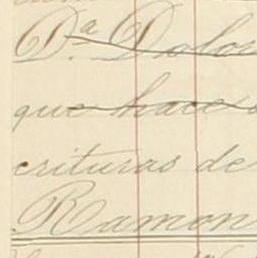 Dª Dolor
que hace
crituras de
Ramon